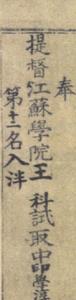 奉
提督江蘇學院王 科試取中
第十二名入泮